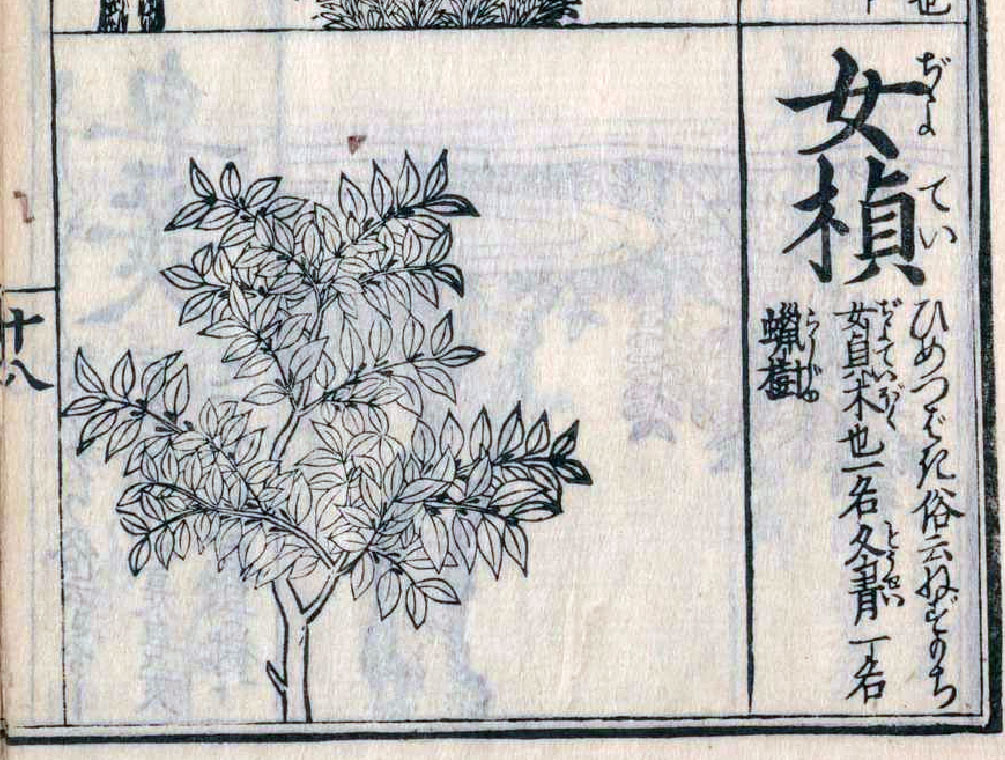 也
女楨
ぢよ
てい
ひめつばき俗云ねずもち
女貞木也一名冬青一名
ぢよていぼく
とうせい
蠟樹
らうじゆ
十八